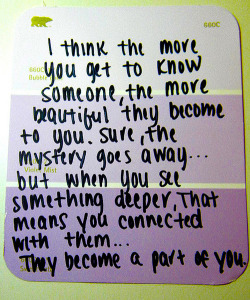 660C
I think the more
you get to know
someone, the more
beautiful they become
to you. Sure, the
mystery goes away...
Mist
but when you see
something deeper, that
means you connected
with them...
They become a part of you.